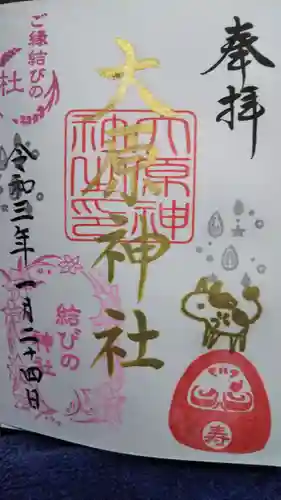 奉拝
大原神社
大原神社之印
ご縁結びの
社
令和三年一月二十四日
結びの
神社
寿